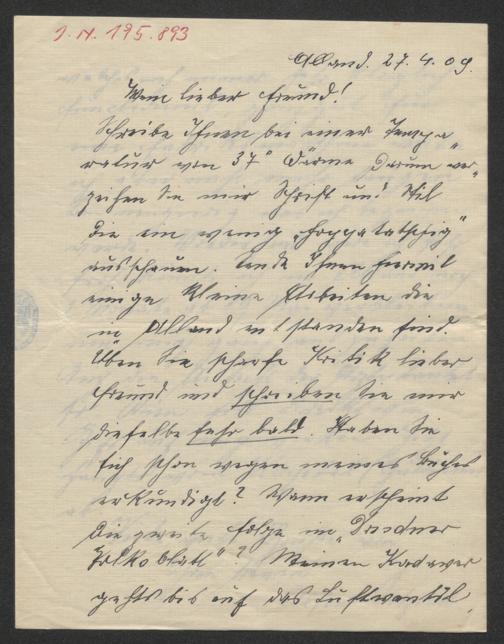 I. N. 195.893
Alland. 27.4.09.
Mein lieber Freund!
Schreibe Ihnen bei einer Tempe„
ratur von 37° Wärme darum ver„
zeihen Sie mir Schrift und Stil
die ein wenig „hoppatatschig“
ausschauen. Sende Ihnen hiermit
einige kleine Arbeiten die
in Alland entstanden sind.
Üben Sie scharfe Kritik lieber
Freund und schreiben Sie mir
dieselbe sehr bald. Haben Sie
sich schon wegen meines Buches
erkundigt? Wann erscheint
die zweite Folge im „Dresdner
Volksblatt“? Meinen Kadaver
gehts bis auf das Luftventil,